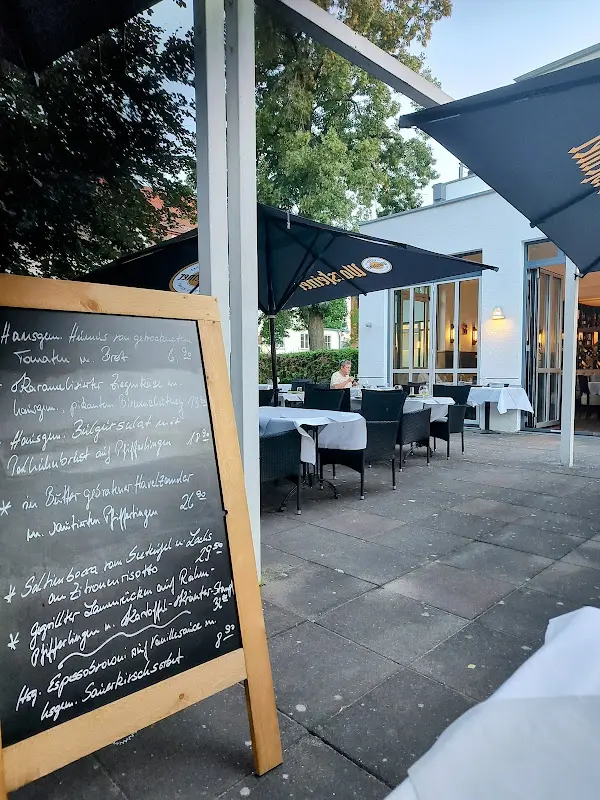 Hausgem. Humus von getrockneten
Tomaten m. Brot 6,90
* Karamelisierter Ziegenkäse m.
hausgem. pikanten Birnenchutney 13,90
* Hausgem. Bulgursalat mit
Perlhuhnbrust auf Pfifferlingen 17,90
* in Butter gebratener Havelzander
m. sautierten Pfifferlingen 26,90
* Saltimbocca vom Seeteufel u. Lachs
an Zitronenrisotto 29,50
* gegrillter Lammrücken auf Rahm-
Pfifferlingen u. Kartoffel-Kräuter-Stampf
Hsg. Espressobrowni auf Vanillesauce m.
hsgem. Sauerkirschsorbet 8,90